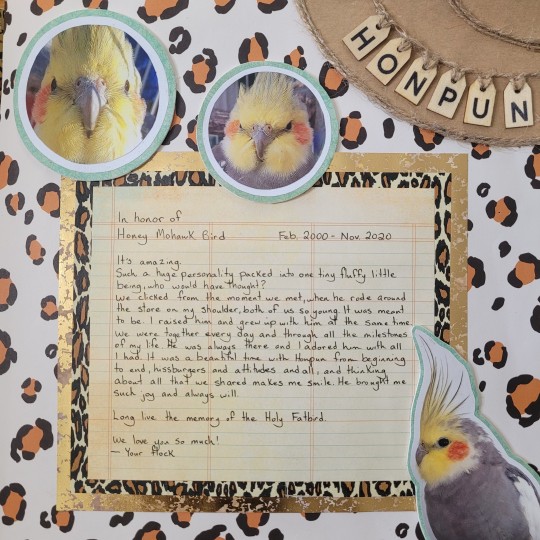 HONPUN
In honor of
Honey Mohawk Bird Feb. 2000 - Nov. 2020
It's amazing.
Such a huge personality packed into one tiny fluffy little
being, who would have thought?
We clicked from the moment we met, when he rode around
the store on my shoulder, both of us so young. It was meant
to be. I raised him and grew up with him at the same time.
We were together every day and through all the milestones
of my life. He was always there and I adored him with all
I had. It was a beautiful time with Honpun from beginning
to end, hissburgers and attitudes and all, and thinking
about all that we shared makes me smile. He brought me
such joy and always will.
Long live the memory of the Holy Fatbird.
We love you so much!
- Your flock